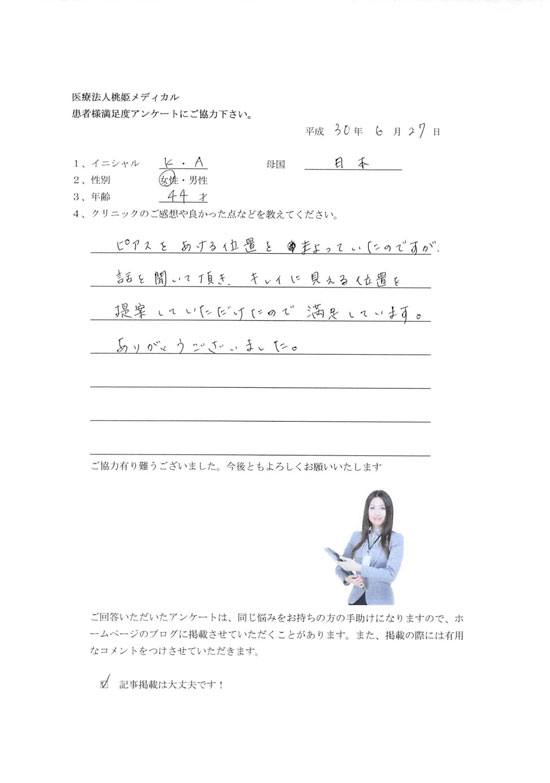 医療法人桃姫メディカル
患者様満足度アンケートにご協力下さい。
平成 30 年 6 月 27 日
1、イニシャル K・A 母国 日本
2、性別 女性・男性
3、年齢 44 才
4、クリニックのご感想や良かった点などを教えてください。
ピアスをあける位置をまよっていたのですが、
話を聞いて頂き、キレイに見える位置を
提案していただけたので満足しています。
ありがとうございました。
ご協力有り難うございました。今後ともよろしくお願いいたします
ご回答いただいたアンケートは、同じ悩みをお持ちの方の手助けになりますので、ホ
ームページのブログに掲載させていただくことがあります。また、掲載の際には有用
なコメントをつけさせていただきます。
☑ 記事掲載は大丈夫です！